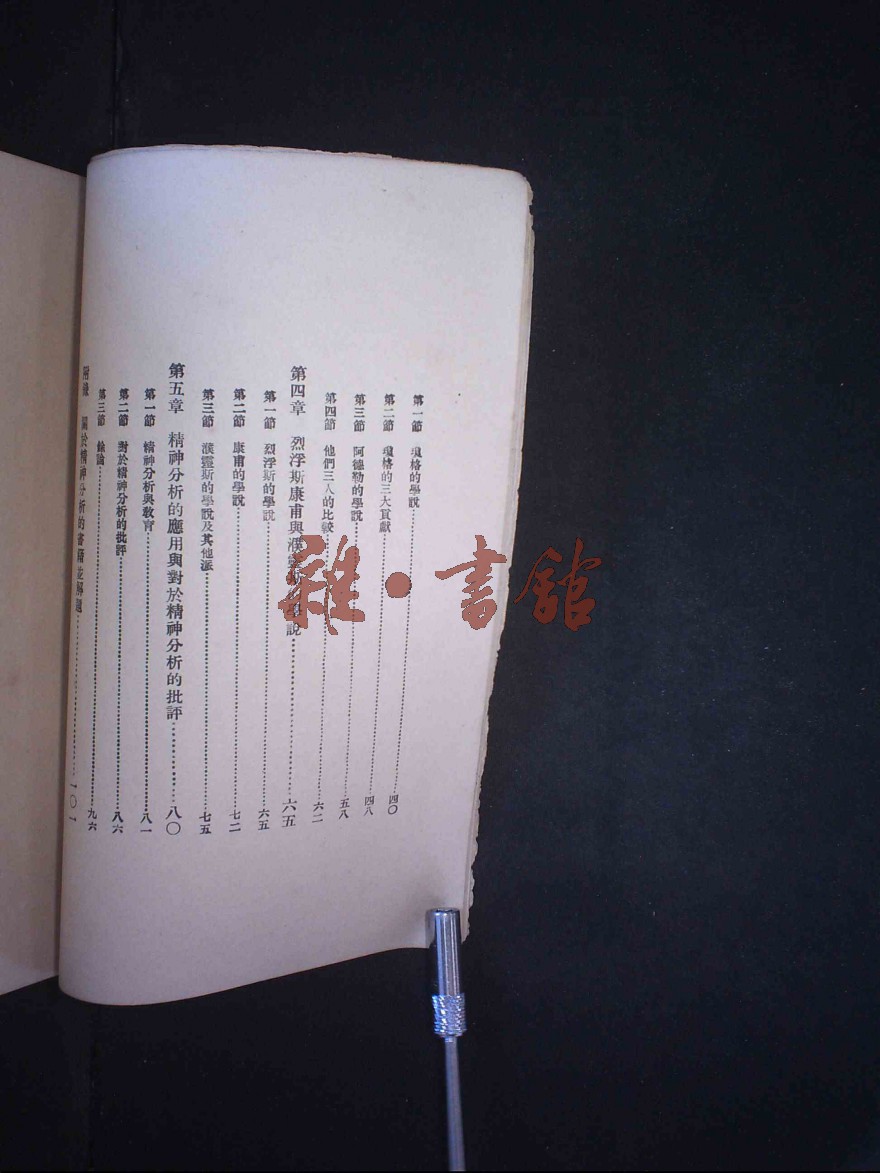 第一節 瓊格的學說 四〇
第二節 瓊格的三大貢獻 四八
第三節 阿德勒的學說 五八
第四節 他們三人的比較 六二
第四章 烈浮斯康甫與濮靈斯的學說 六五
第一節 烈浮斯的學說 六五
第二節 康甫的學說 七二
第三節 濮靈斯的學說及其他派 七五
第五章 精神分析的應用與對於精神分析的批評 八〇
第一節 精神分析與教育 八一
第二節 對於精神分析的批評 八六
第三節 餘論 九六
附錄 關於精神分析的書籍並解題 一〇一
雜·書館